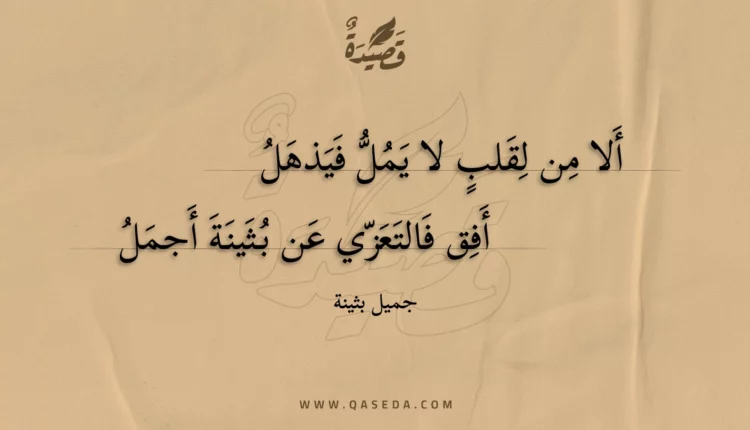 قَصِيدَةٌ
أَلا مِن لِقَلبٍ لا يَمُلُّ فَيَذهَلُ
أَفِق فَالتَعَزّي عَن بُثَينَةَ أَجمَلُ
جميل بثينة
WWW.QASEDA.COM